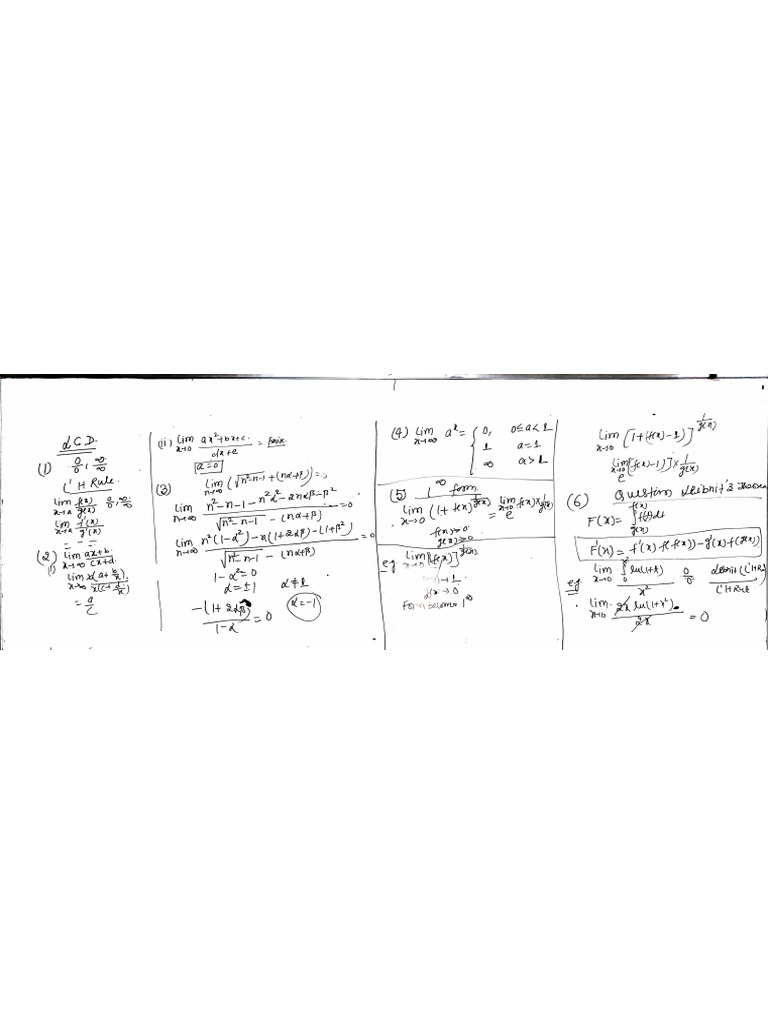 L C D.
(1) 0/0, ∞/∞
L' H Rule.
lim x→a f(x)/g(x) 0/0, ∞/∞
lim x→a f'(x)/g'(x)
= = =
(2) (i) lim x→∞ ax+b/cx+d
lim x→∞ x(a+b/x)/x(c+d/x)
= a/c
(ii) lim x→0 ax²+bx+c/dx+e =
a=0
(3) lim n→∞ (√n²-n-1 + (nα+β)) = 0
lim n→∞ n²-n-1-n²α²-2nαβ-β²/√n²-n-1 - (nα+β) = 0
lim n→∞ n²(1-α²)-n(1+2αβ)-(1+β²)/√n²-n-1 - (nα+β) = 0
1-α²=0
α=±1 α≠1
-(1+2αβ)/1-α = 0 α=-1
(4) lim x→∞ aˣ = { 0, 0≤a<1
1 a=1
∞ a>1
(5) 1^∞ form
lim x→0 (1+f(x))^1/g(x) = e^lim x→0 f(x)×1/g(x)
f(x)→0
g(x)→0
eg lim x→0 [f(x)]^1/g(x)
→1
g(x)→0
Form becomes 1^∞
lim x→0 [1+(f(x)-1)]^1/g(x)
e^lim x→0 [f(x)-1)]×1/g(x)
(6) Question Leibnit's
F(x)= ∫ g(x) f(x) f(t)dt
F'(x) = f'(x) f(f(x)) - g'(x) f(g(x))
eg lim x→0 ∫ ln(1+t)/x² 0/0 Leibnit (L'HR
L'H Rule
lim x→0 2x ln(1+x²)/2x = 0